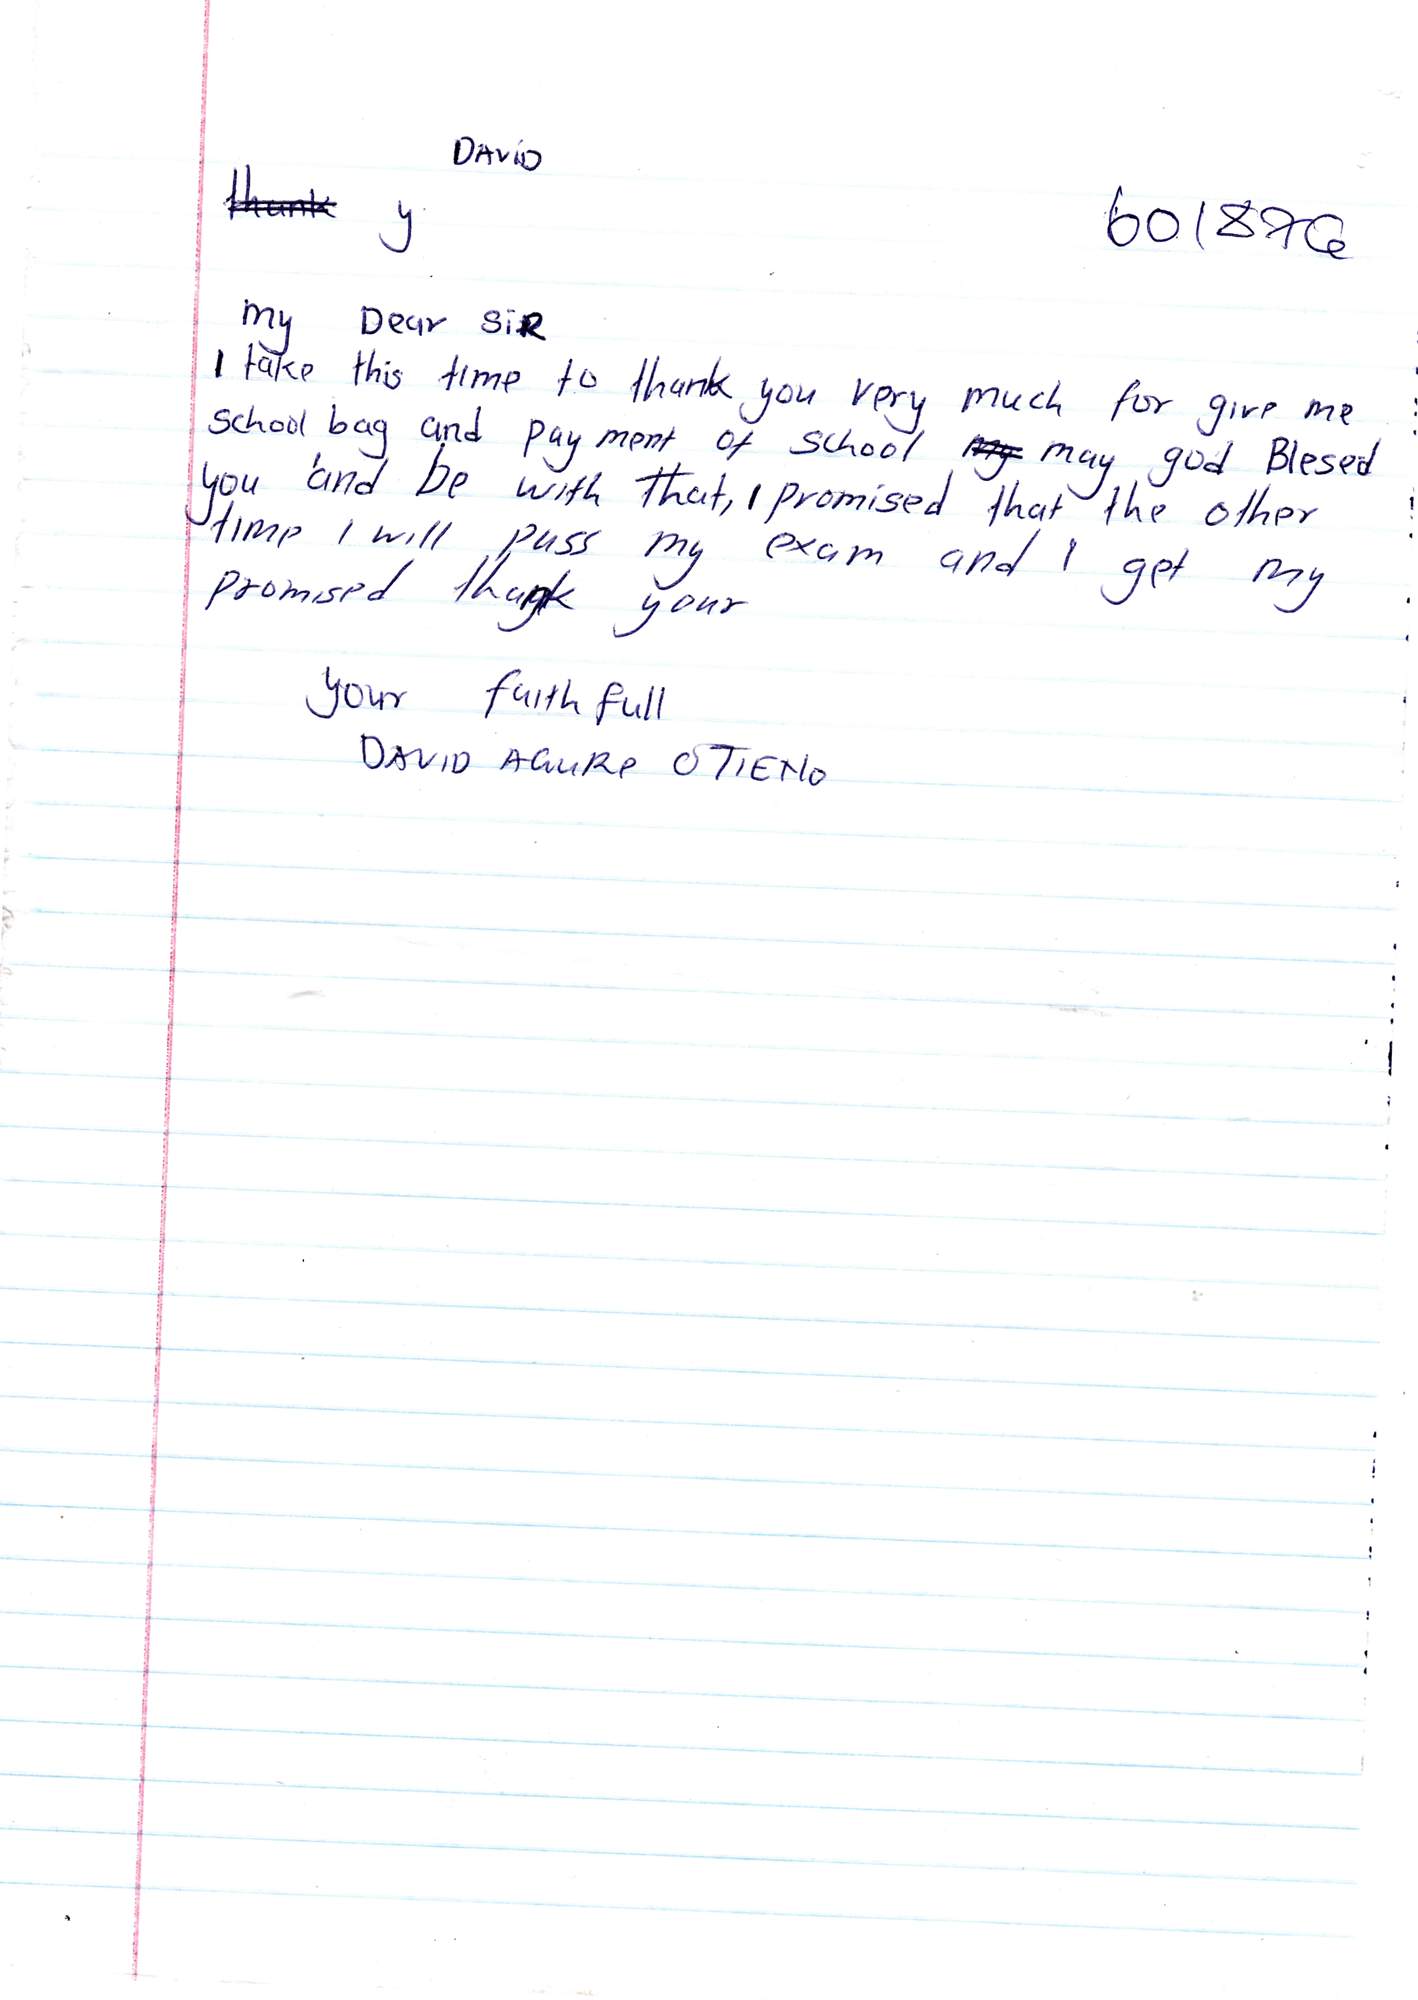 DAVID
thank y
601876
my Dear SiR
I take this time to thank you very much for give me
school bag and payment of school my may god Blesed
you and be with that, I promised that the other
time I will pass my exam and I get my
promised thank your
your faithfull
DAVID AGURE OTIENO